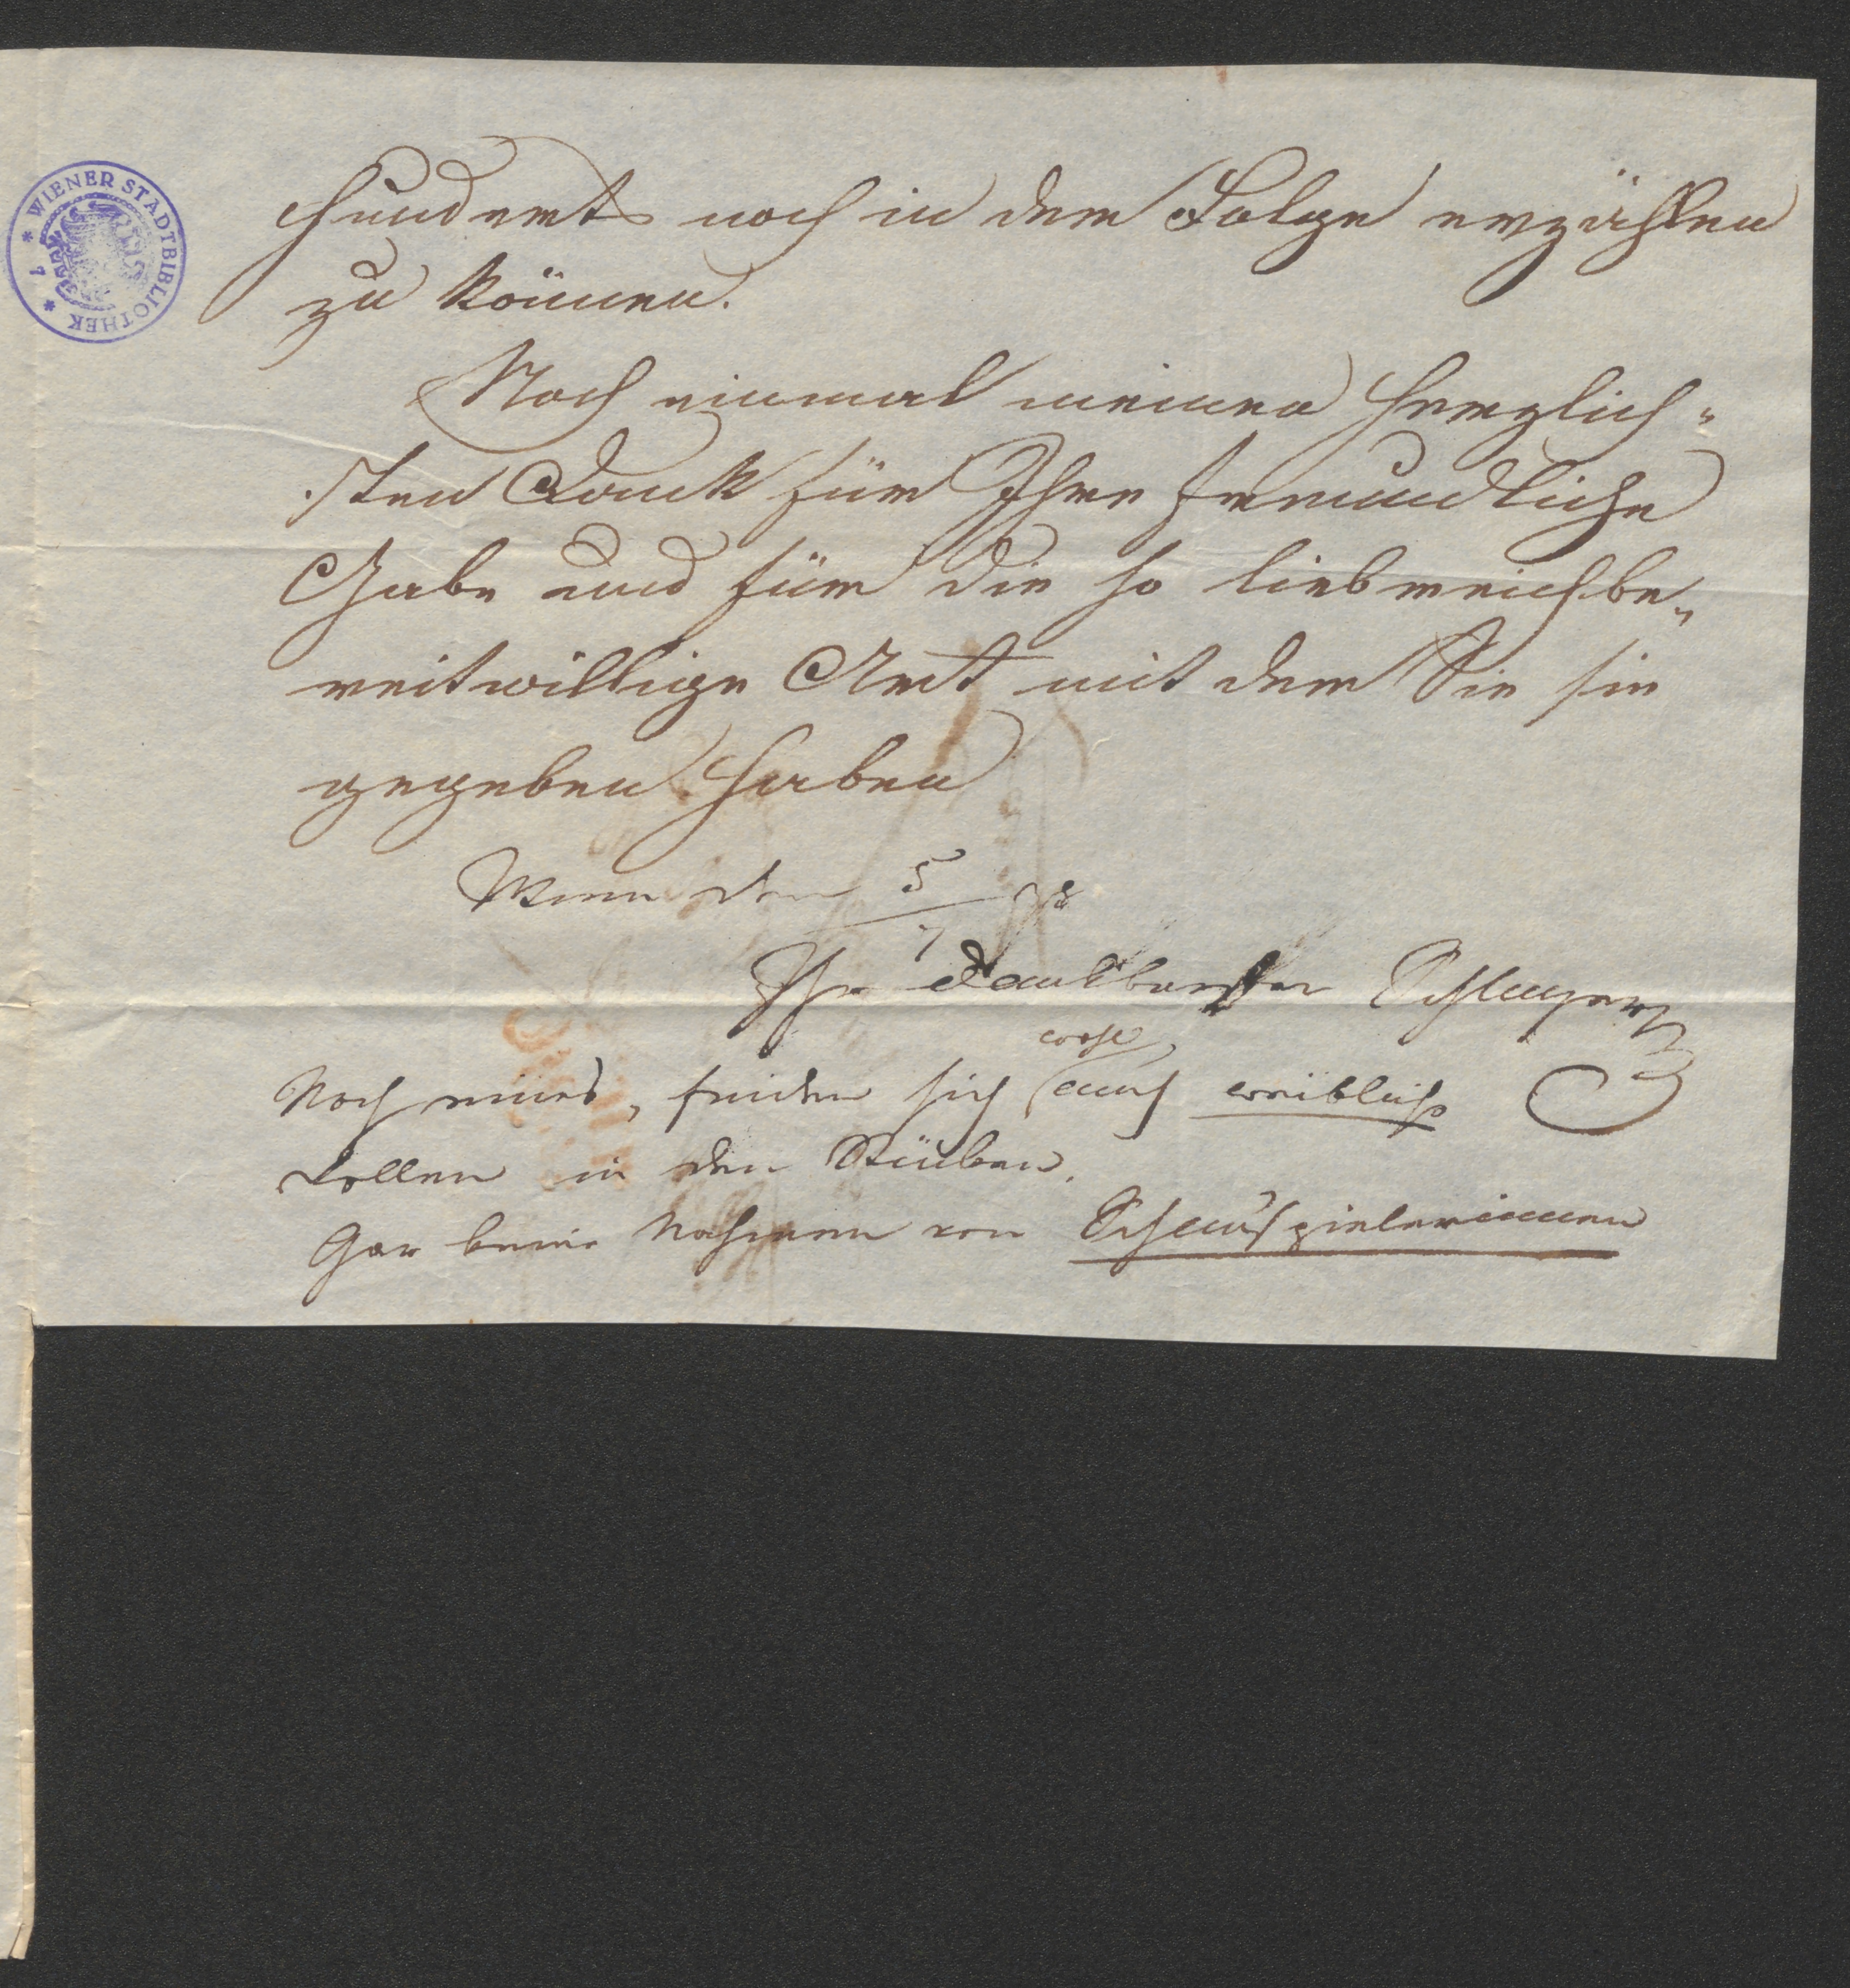 WIENER STADTBIBLIOTHEK
hunderts noch in der Folge erzählen
zu können.
Noch einmal meinen herzlich-
sten Dank für Ihre freundliche
Gabe und für die so liebreich be-
reitwillige Art mit der Sie sie
gegeben haben
Wien den 5/7
Ihr dankbarster
wohl
Noch eines, finden sich auch weibliche
Rollen in den Stücken.
Gar keine Nahmen von Schauspielerinnen